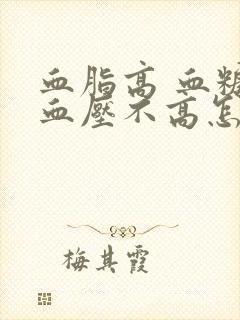 血脂高 血糖
血壓不高怎
梅其霞